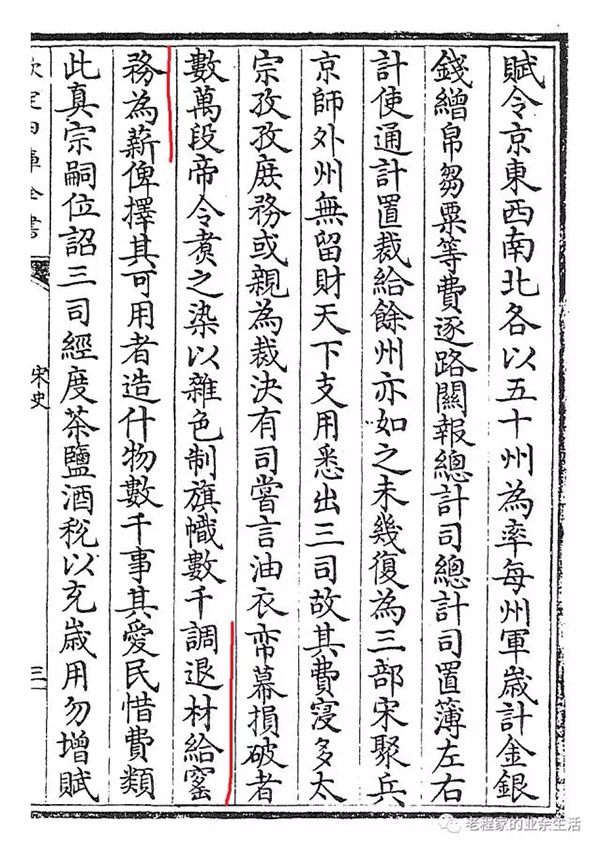 賦令京東西南北各以五十州為率每州軍歲計金銀
錢繒帛芻粟等費逐路關報總計司總計司置簿左右
計使通計置裁給餘州亦如之未幾復為三部宋聚兵
京師外州無留財天下支用悉出三司故其費寖多太
宗孜孜庶務或親為裁決有司嘗言油衣帟幕損破者
數萬段帝令煑之染以雜色制旗幟數千調退材給窰
務為薪俾擇其可用者造什物數千事其愛民惜費類
此真宗嗣位詔三司經度茶鹽酒稅以充歲用勿增賦
欽定四庫全書
宋史
三
老程家的业余生活